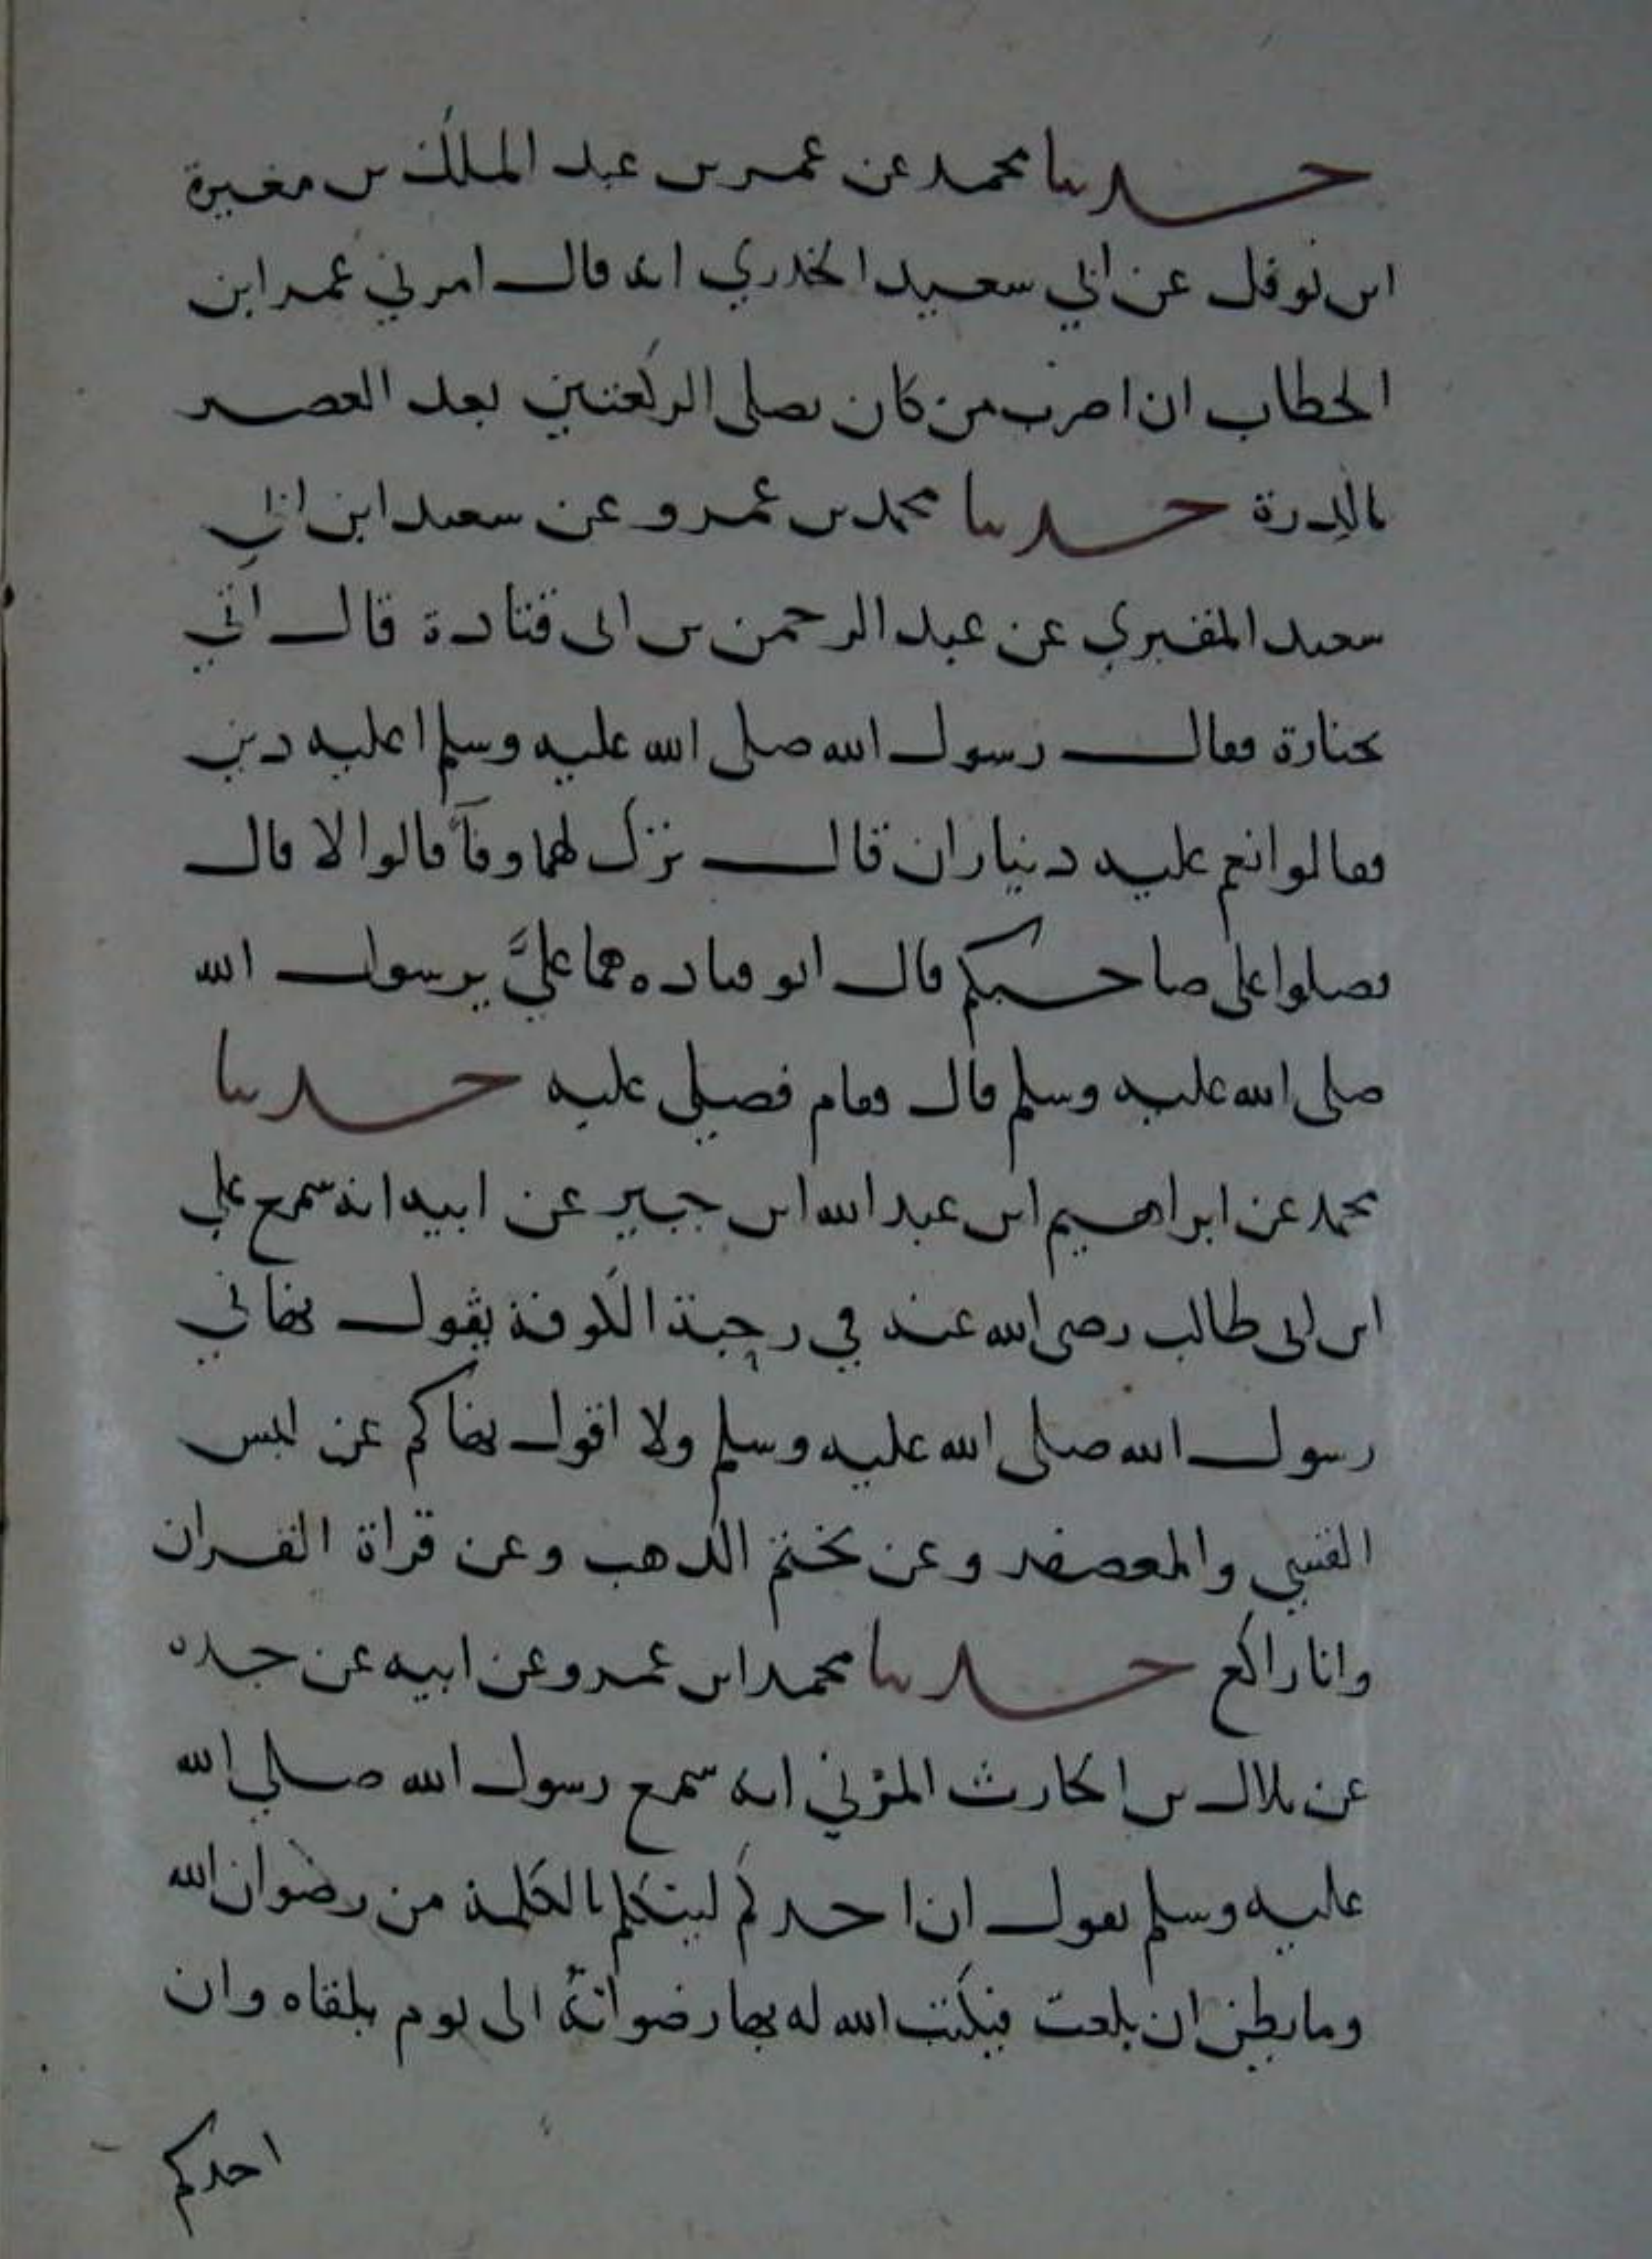 حدثنا محمد عن عمر بن عبد الملك بن مغيرة
ابن نوفل عن ابي سعيد الخدري انه قال امرني عمر ابن
الخطاب ان اضرب من كان يصلي الركعتين بعد العصر
بالدرة حدثنا محمد بن عمرو عن سعيد ابن ابي
سعيد المقبري عن عبد الرحمن بن ابى قتادة قال اتي
بجنازة فقال رسول الله صلى الله عليه وسلم اعليه دين
فقالوا نعم عليه ديناران قال نزل لهما وفآ قالوا لا قال
فصلوا على صاحبكم قال ابو قتاده هما عليَّ يرسول الله
صلى الله عليه وسلم قال فقام فصلى عليه حدثنا
محمد عن ابراهيم ابن عبد الله ابن جبير عن ابيه انه سمع علي
ابن ابى طالب رضى الله عنه في رحبة الكوفة يقول نهاني
رسول الله صلى الله عليه وسلم ولا اقول نهاكم عن لبس
القسي والمعصفر وعن تختم الذهب وعن قراة القران
وانا راكع حدثنا محمد ابن عمرو عن ابيه عن جده
عن بلال بن الحارث المزني انه سمع رسول الله صلي الله
عليه وسلم يقول ان احدكم ليتكلم بالكلمة من رضوان الله
وما يظن ان بلغت فيكتب الله له بها رضوانهُ الى يوم يلقاه وان
احدكم